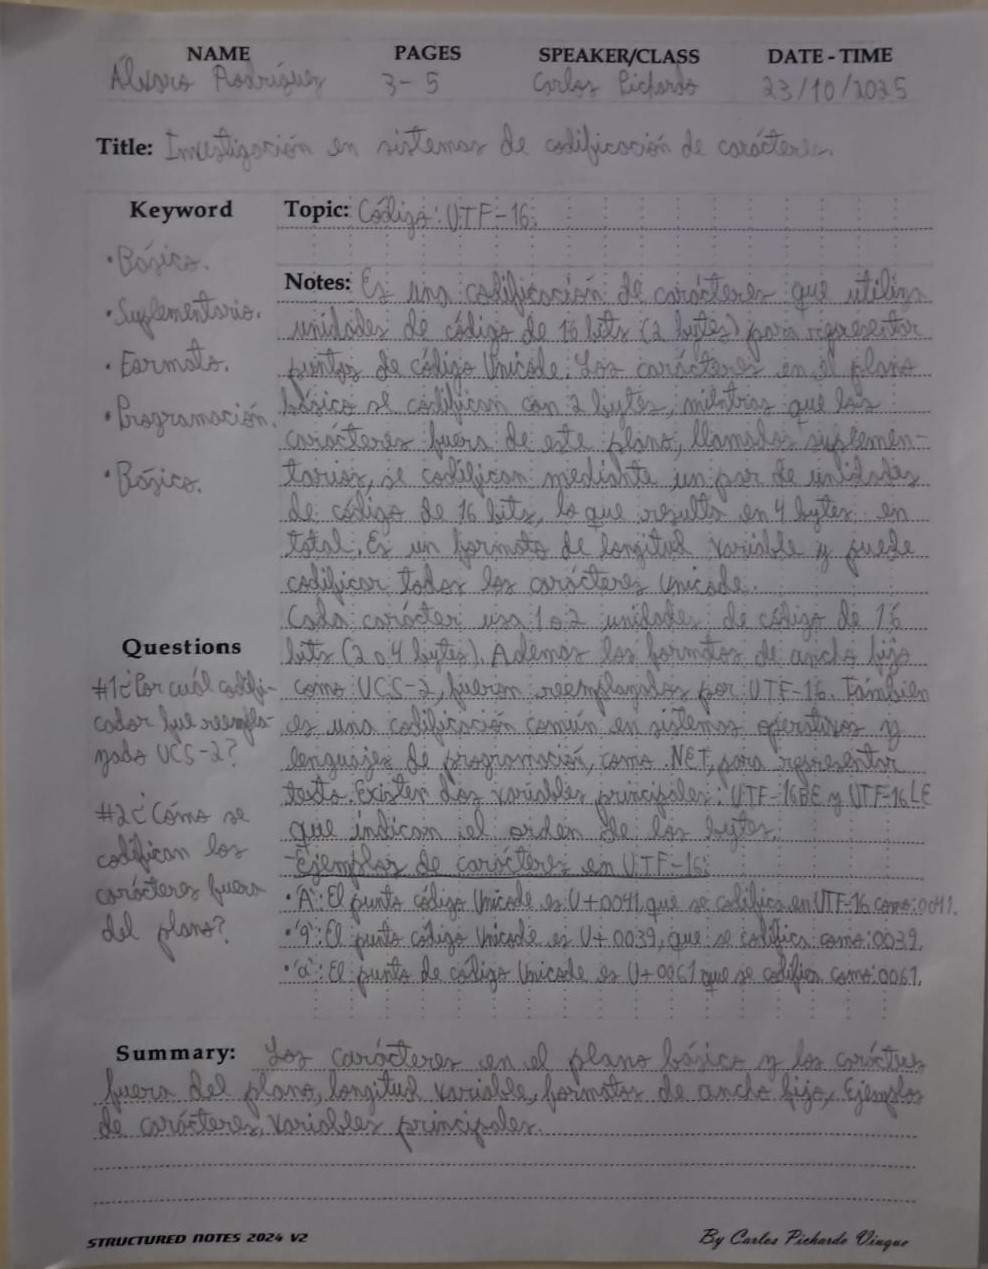 NAME PAGES SPEAKER/CLASS DATE-TIME
Álvaro Rodríguez 3-5 Carlos Pichardo 23/10/2025
Title: Investigación en sistemas de codificación de carácteres.
Keyword
• Básico.
• Suplementario.
• Formato.
• Programación.
• Básico.
Topic: Código: UTF-16.
Notes: Es una codificación de carácteres que utiliza
unidades de código de 16 bits (2 bytes) para representar
puntos de código Unicode. Los carácteres en el plano
básico se codifican con 2 bytes, mientras que los
carácteres fuera de este plano, llamados suplemen-
tarios, se codifican mediante un par de unidades
de código de 16 bits, lo que resulta en 4 bytes en
total. Es un formato de longitud variable y puede
codificar todos los carácteres Unicode.
Cada carácter usa 1 o 2 unidades de código de 16
bits (2 o 4 bytes). Ademas los formatos de ancho fijo
como UCS-2, fueron reemplazados por UTF-16. También
es una codificación común en sistemas operativos y
lenguajes de programación, como .NET, para representar
texto. Existen dos variables principales: UTF-16BE y UTF-16LE
que indican el orden de los bytes.
Ejemplos de carácteres en UTF-16:
• 'A': El punto código Unicode es U+0041, que se codifica en UTF-16 como: 0041.
• '9': El punto código Unicode es U+0039, que se codifica como: 0039.
• 'a': El punto de código Unicode es U+0061 que se codifica como: 0061.
Questions
#1¿Por cuál codifi-
cador fue reempla-
zado UCS-2?
#2¿Cómo se
codifican los
carácteres fuera
del plano?
Summary: Los carácteres en el plano básico y los carácteres
fuera del plano, longitud variable, formatos de ancho fijo, Ejemplos
de carácteres, variables principales.
STRUCTURED NOTES 2024 V2 By Carlos Pichardo Viuque